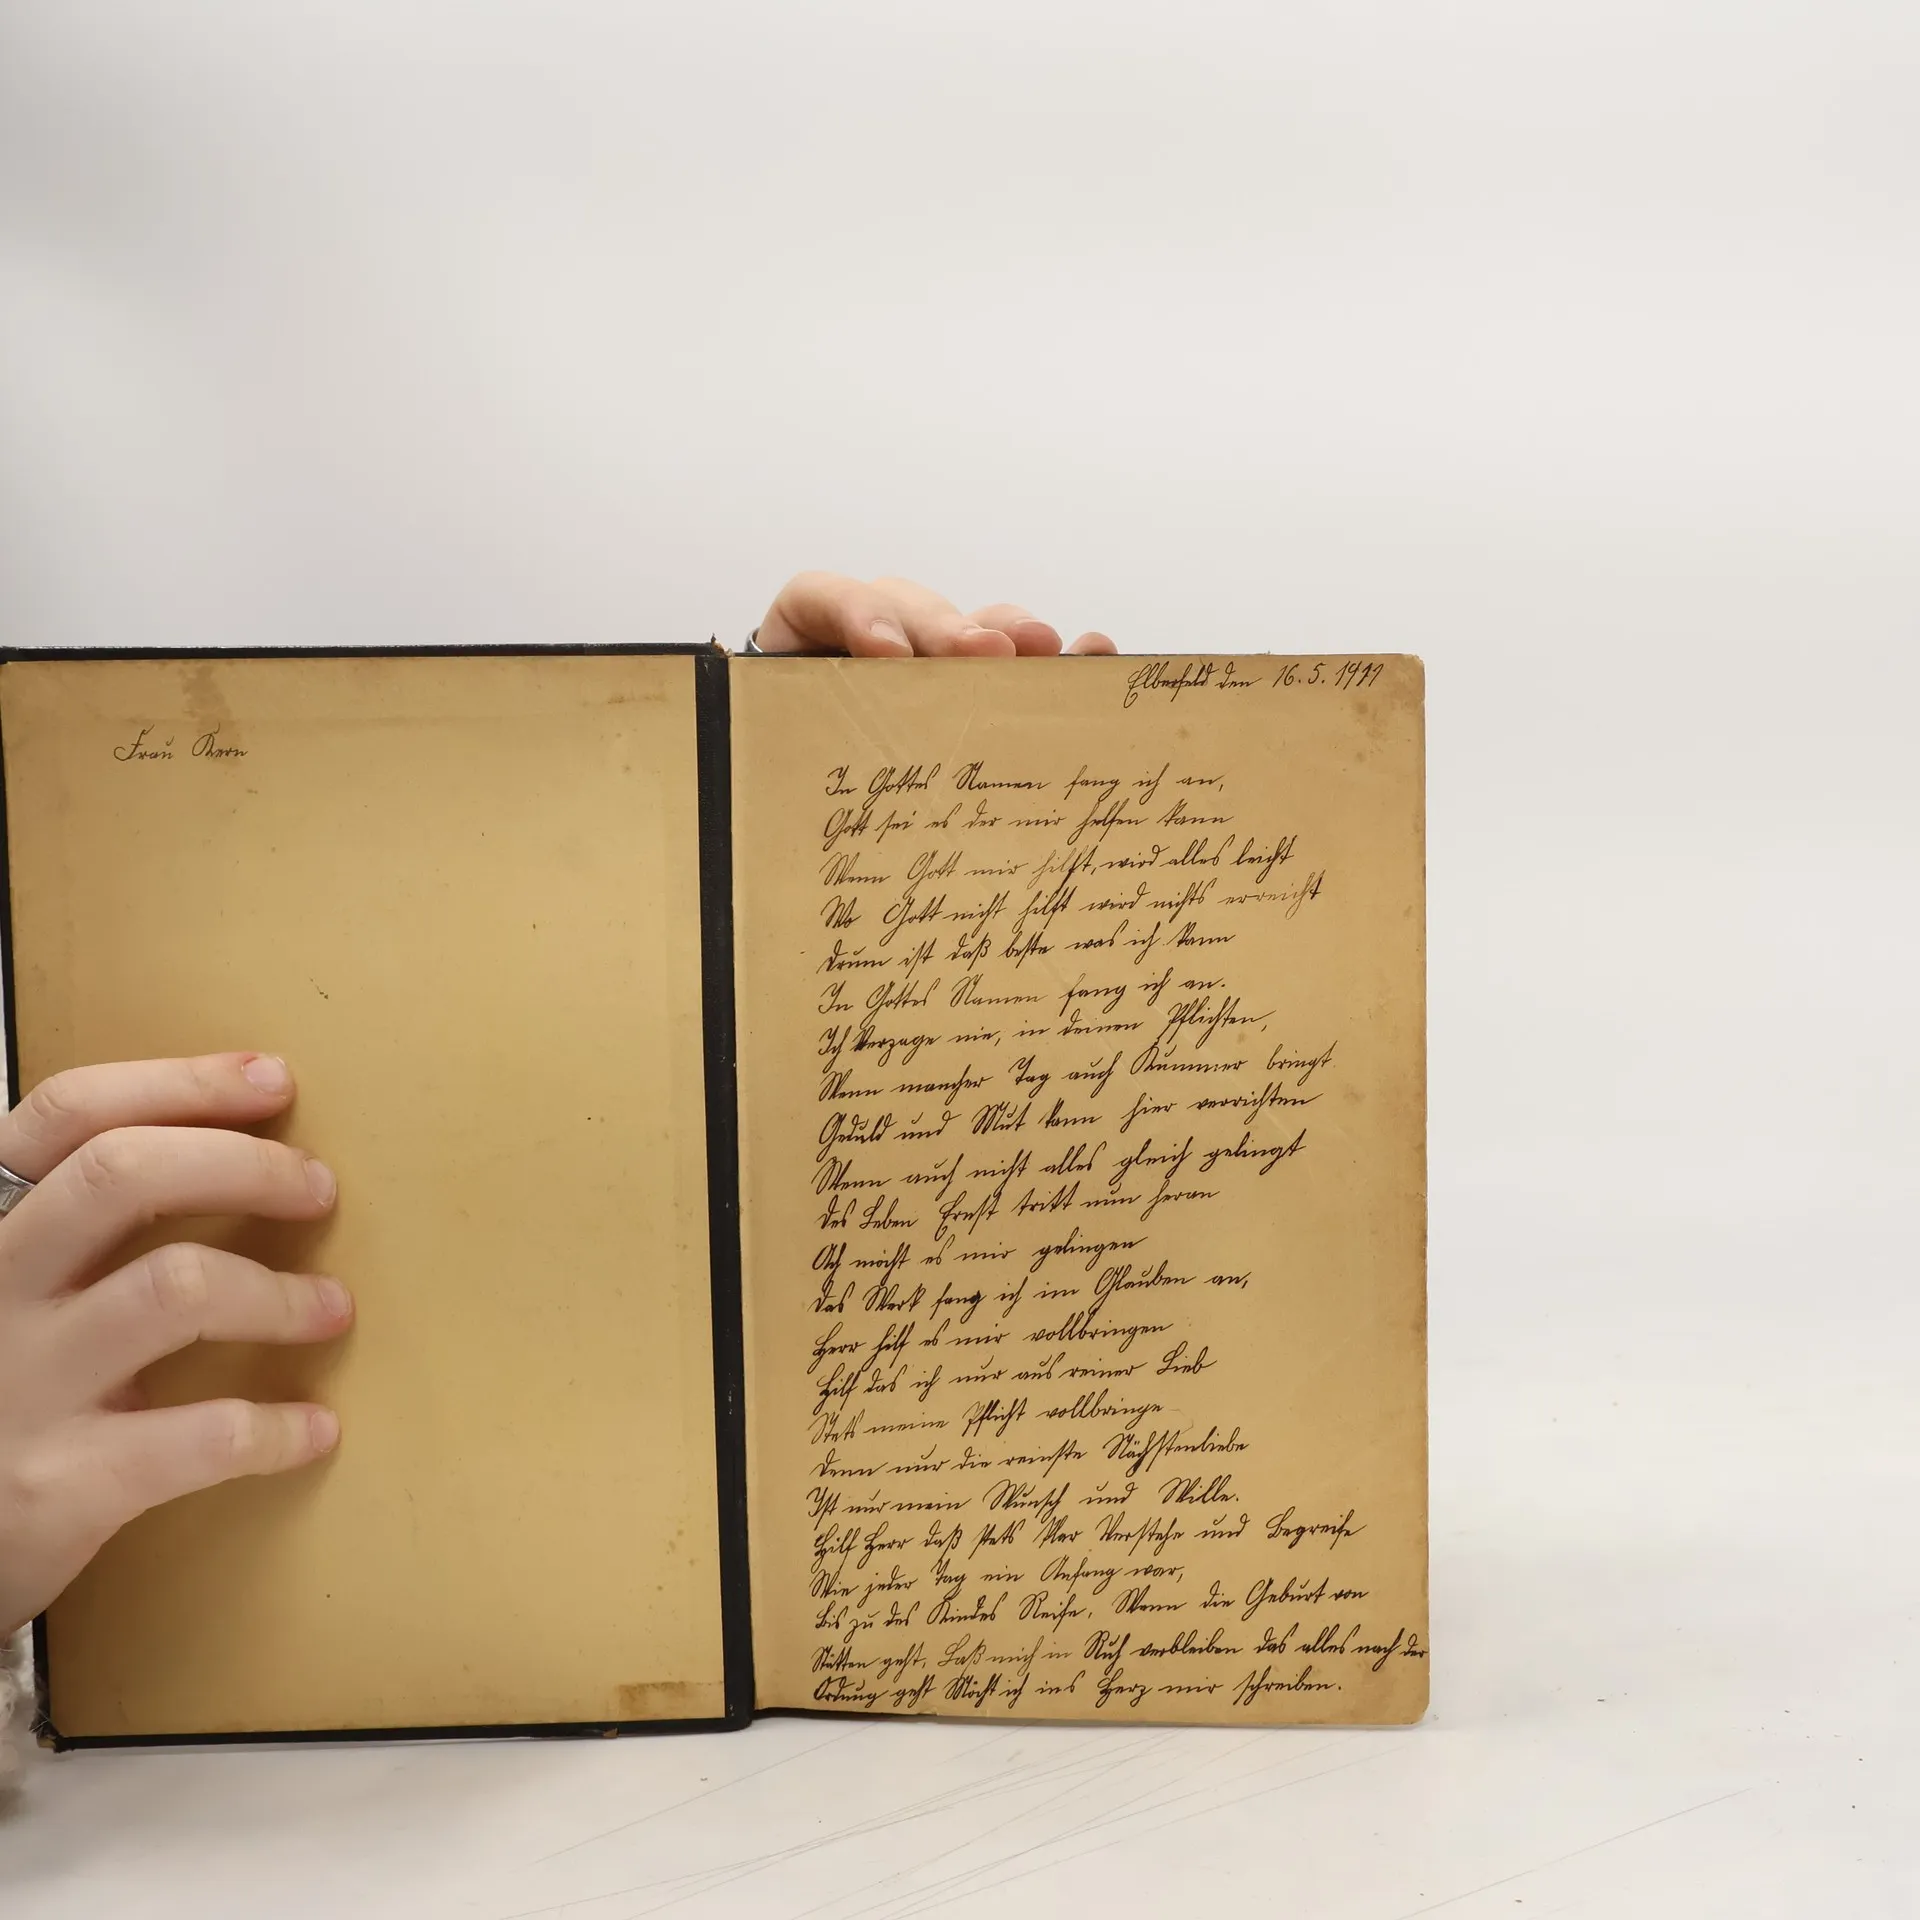 Frau Kern
Elberfeld den 16. 5. 1911
In Gottes Namen fang ich an,
Gott sei es der mir helfen kann
Wenn Gott mir hilft, wird alles leicht
Wo Gott nicht hilft wird nichts erreicht
Drum ist daß beste was ich kann
In Gottes Namen fang ich an.
Ich Verzage nie, in deinen Pflichten,
Wenn mancher Tag auch Kummer bringt
Geduld und Mut kann hier verrichten
Wenn auch nicht alles gleich gelingt
Des Leben Ernst tritt nun heran
Ach möcht es mir gelingen
Das Werk fang ich im Glauben an,
Herr hilf es mir vollbringen
Hilf das ich nur aus reiner Lieb
Stets meine Pflicht vollbringe
Denn nur die reinste Nächstenliebe
Ist nur mein Wunsch und Wille.
Hilf Herr daß stets klar Verstehe und Begreife
Wie jeder Tag ein Anfang war,
Bis zu des Kindes Reife, Wenn die Geburt von
Statten geht, Laß mich in Ruh verbleiben das alles nach der
Ordnug geht Möcht ich ins Herz mir schreiben.